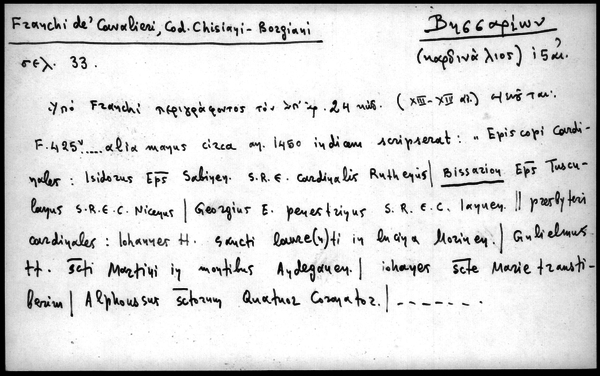 Franchi de' Cavalieri, Cod. Chisiani-Borgiani
Βησσαρίων
σελ. 33.
(καρδινάλιος) 15 αἰ.
Ὑπὸ Franchi περιγράφοντος τὸν ὑπ' ἀρ. 24 κώδ. (XIII-XIV αἰ.)
F. 425v ..... alia manus circa an. 1450 indicem scripserat: „ Episcopi Cardi-
nales: Isidorus Ep̅s̅ Sabinen. S.R.E. cardinalis Ruthenus | Bissarion Ep̅s̅ Tuscu-
lanus S.R.E.C. Nicenus | Georgius E. penestrinus S.R.E.C. Ianuen. || presbyteri
cardinales: Iohannes tt. sancti laure(n)ti in lucina Morinen. | Gulielmus
tt. s̅c̅ti Martini in montibus Andeganen. | iohanes s̅c̅te Marie transti-
berim | Alphonssus s̅c̅torum Quatuor Coronator. | - - - - - - .